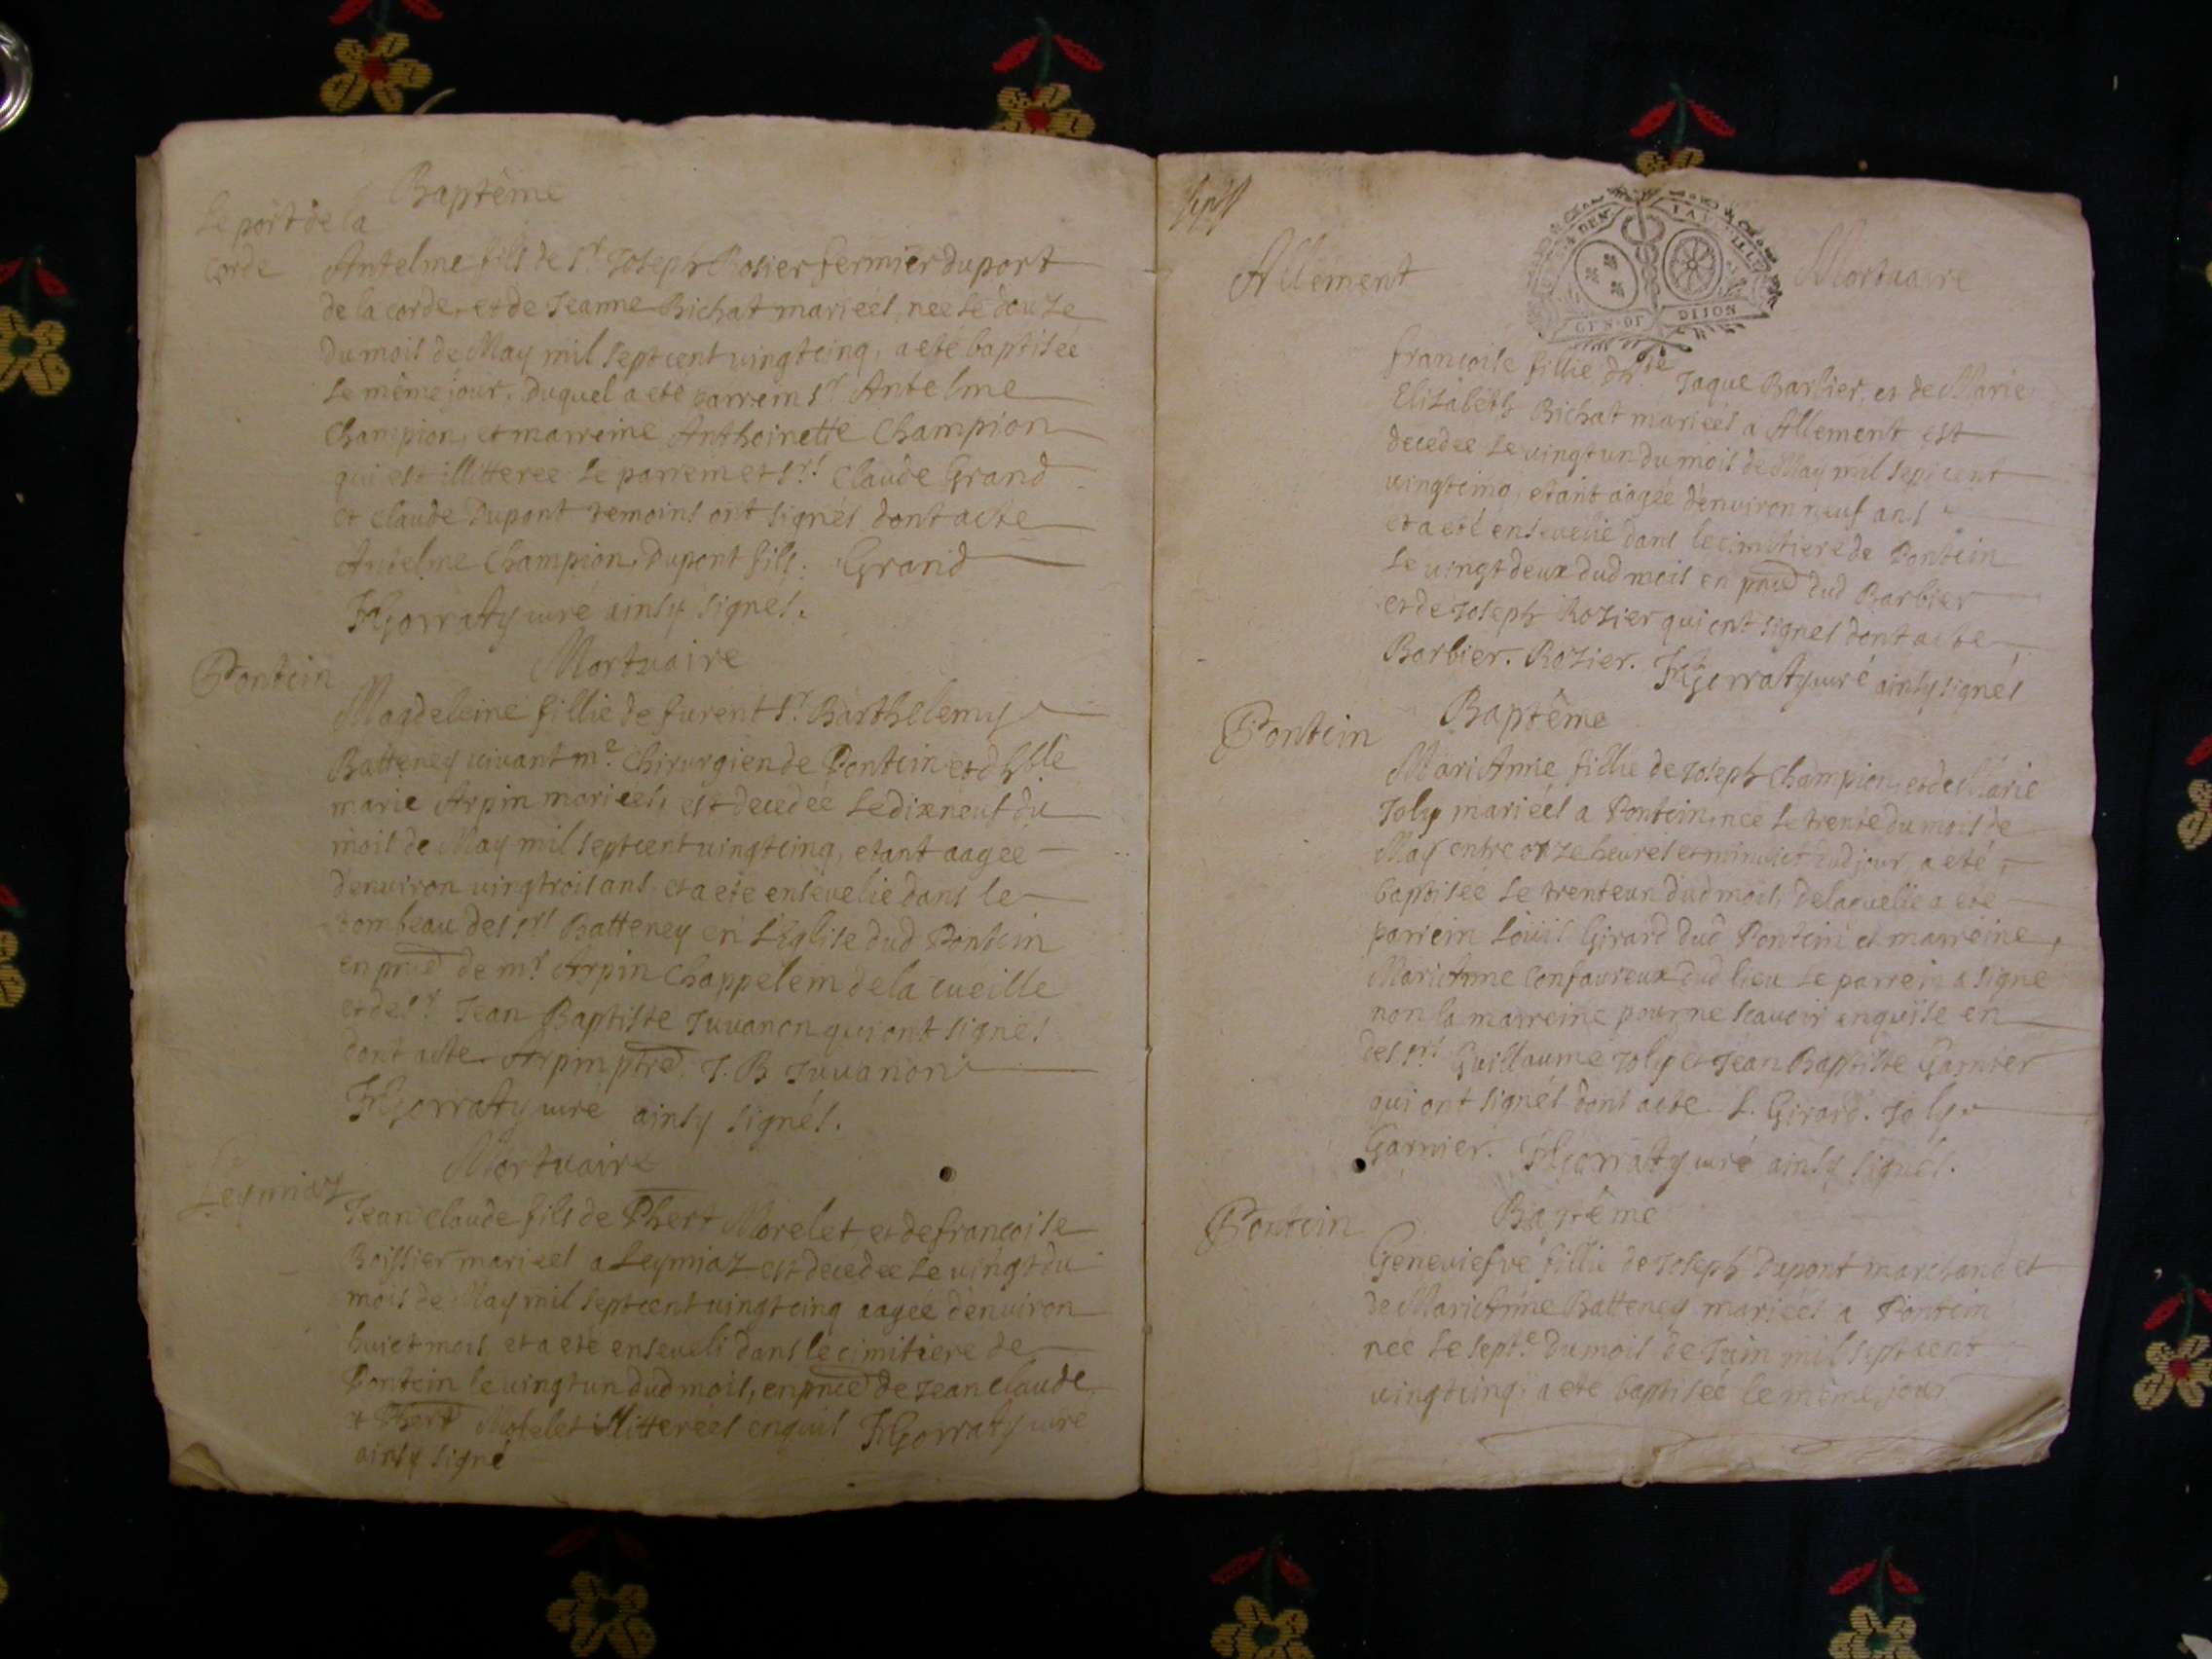 Baptême
Le port de la
corde
Antelme fils de Sr. Joseph Rosier fermier du port
de la corde, et de Jeanne Bichat mariéés, nee le douze
du mois de May mil sept cent vingtcinq, a eté baptiséé
le même jour. duquel a eté parrein Sr. Antelme
Champion, et marreine Anthoinette Champion
qui est illitteree le parrein et Srs. Claude Grand
et Claude Dupont temoins ont signés dont acte
Antelme Champion. Dupont fils. Grand
Gorraty curé ainsy signés.
Pontein
Mortuaire
Magdeleine fillie de furent Sr. Barthelemy
Batteney vivant me. Chirurgien de Pontein et
marie Arpin mariéés, est decedéé le dixneuf du
mois de May mil sept cent vingtcinq, etant aagéé
denviron vingtrois ans et a eté ensevelie dans le
tombeau des Srs. Batteney en l'Eglise dud Pontein
en prñce de mr. Arpin Chappelein de la cueille
et de Sr. Jean Baptiste Juvanon qui ont signés
dont acte. Arpin ptre. J. B Juvanon
Gorraty curé ainsy signés.
Leymiaz
Mortuaire
Jean Claude fils de Phert Morelet, et de francoise
Boissier mariéés a Leymiaz est decedee le vingt du
mois de May mil sept cent vingtcinq aagéé d'environ
huict mois, et a eté enseveli dans le cimitiere de
Pontein le vingt un dud mois, en prñce de Jean Claude
et Phert Morelet illitteréés enquis Gorraty curé
ainsy signé
Allement
GEN. DE DIJON
Mortuaire
francoise fillie de Jaque Barbier, et de Marie
Elizabeth Bichat mariéés a Allement est
decedee le vingt un du mois de May mil sept cent
vingtcinq, etant aagéé denviron neuf ans
et a eté ensevelie dans le cimitiere de Pontein
le vingt deux dud mois en prñce dud Barbier
et de Joseph Rozier qui ont signés dont acte
Barbier. Rozier. Gorraty curé ainsy signés
Pontein
Baptême
MariAnne fillie de Joseph Champion, et de Marie
Joly mariéés a Pontein, nee le trente du mois de
May entre onze heures et minuict dud jour, a eté
baptiséé le trente un dud mois, de laquelle a eté
parrein Loüis Girard dud Pontein et marreine,
MariAnne Confavreux dud lieu le parrein a signé
non la marreine pour ne scavoir enquise en
des Srs. Guillaume Joly et Jean Baptiste Garnier
qui ont signés dont acte. L. Girard. Joly
Garnier. Gorraty curé ainsy signés.
Pontein
Baptême
Geneviefve fillie de Joseph Dupont marchand et
de MariAnne Batteney mariéés a Pontein
née le septe. du mois de Juin mil sept cent
vingtcinq, a eté baptiséé le même jour